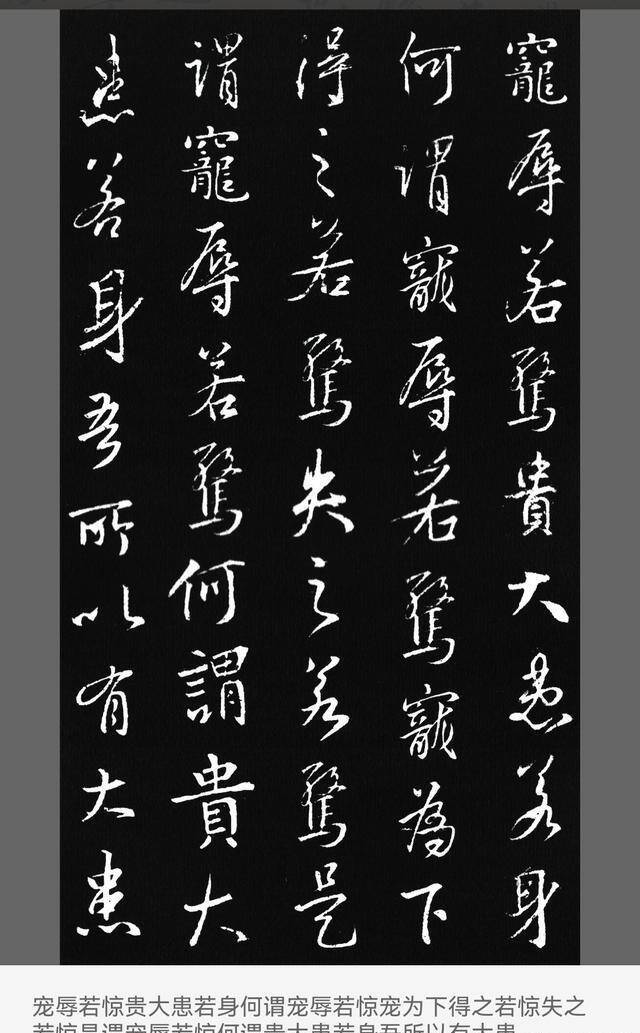 寵辱若驚貴大患若身
何謂寵辱若驚寵為下
得之若驚失之若驚是
謂寵辱若驚何謂貴大
患若身吾所以有大患
宠辱若惊贵大患若身何谓宠辱若惊宠为下得之若惊失之
若惊是谓宠辱若惊何谓贵大患若身吾所以有大患